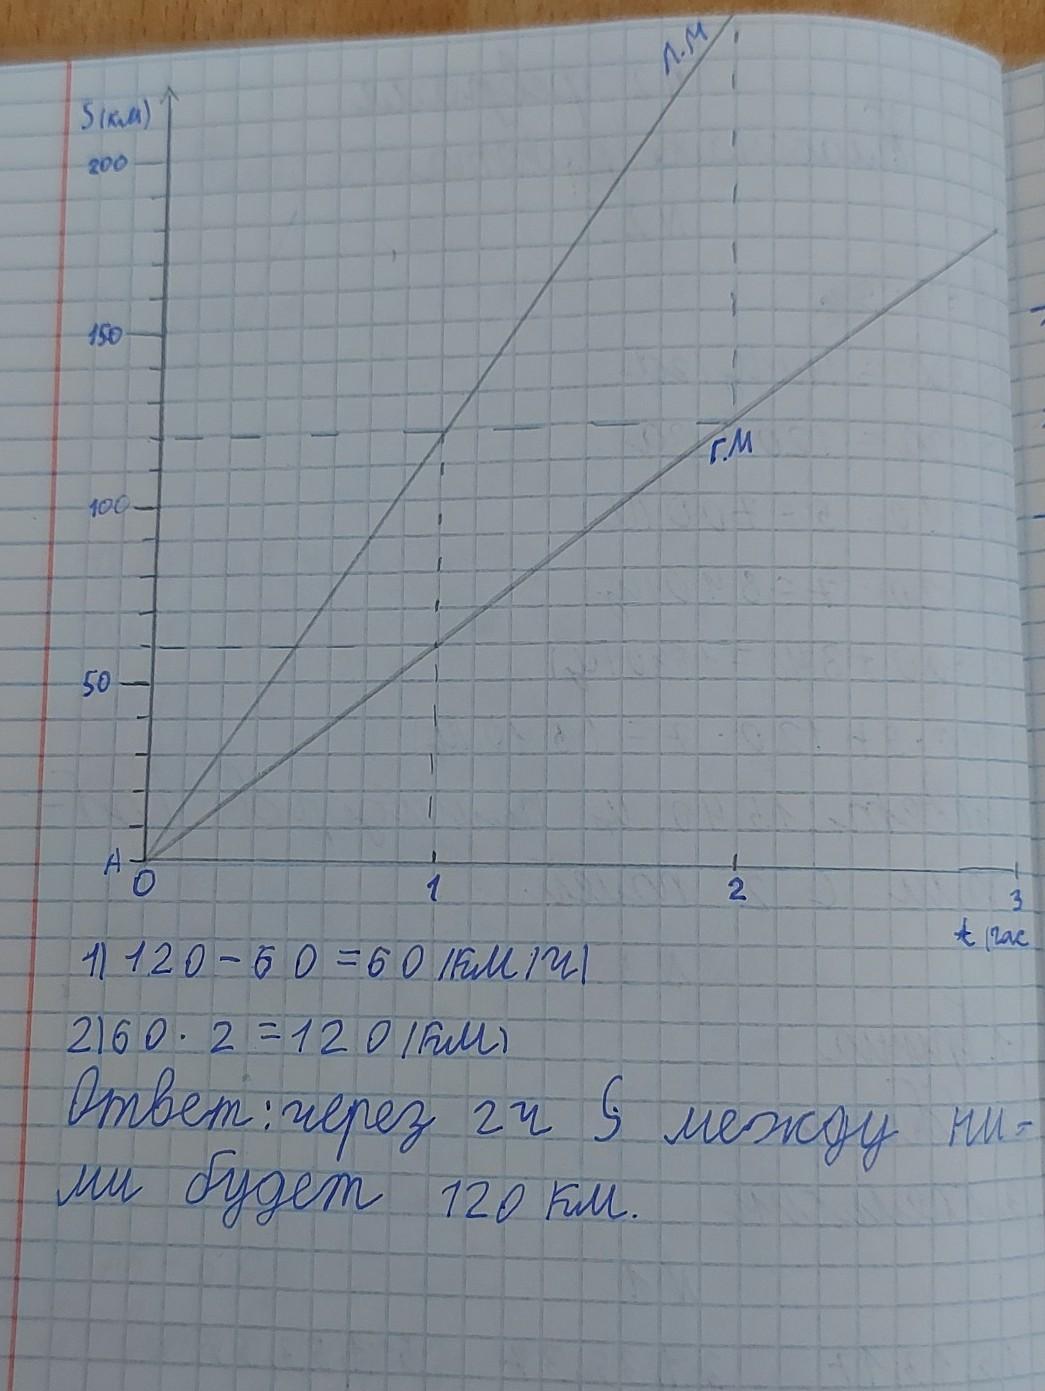 Л.М
S(км)
200
150
Г.М
100
50
A
0 1 2 3
t (час
1) 120 - 60 = 60 (км/ч)
2) 60 · 2 = 120 (км)
Ответ: через 2ч S между ни-
ми будет 120 км.